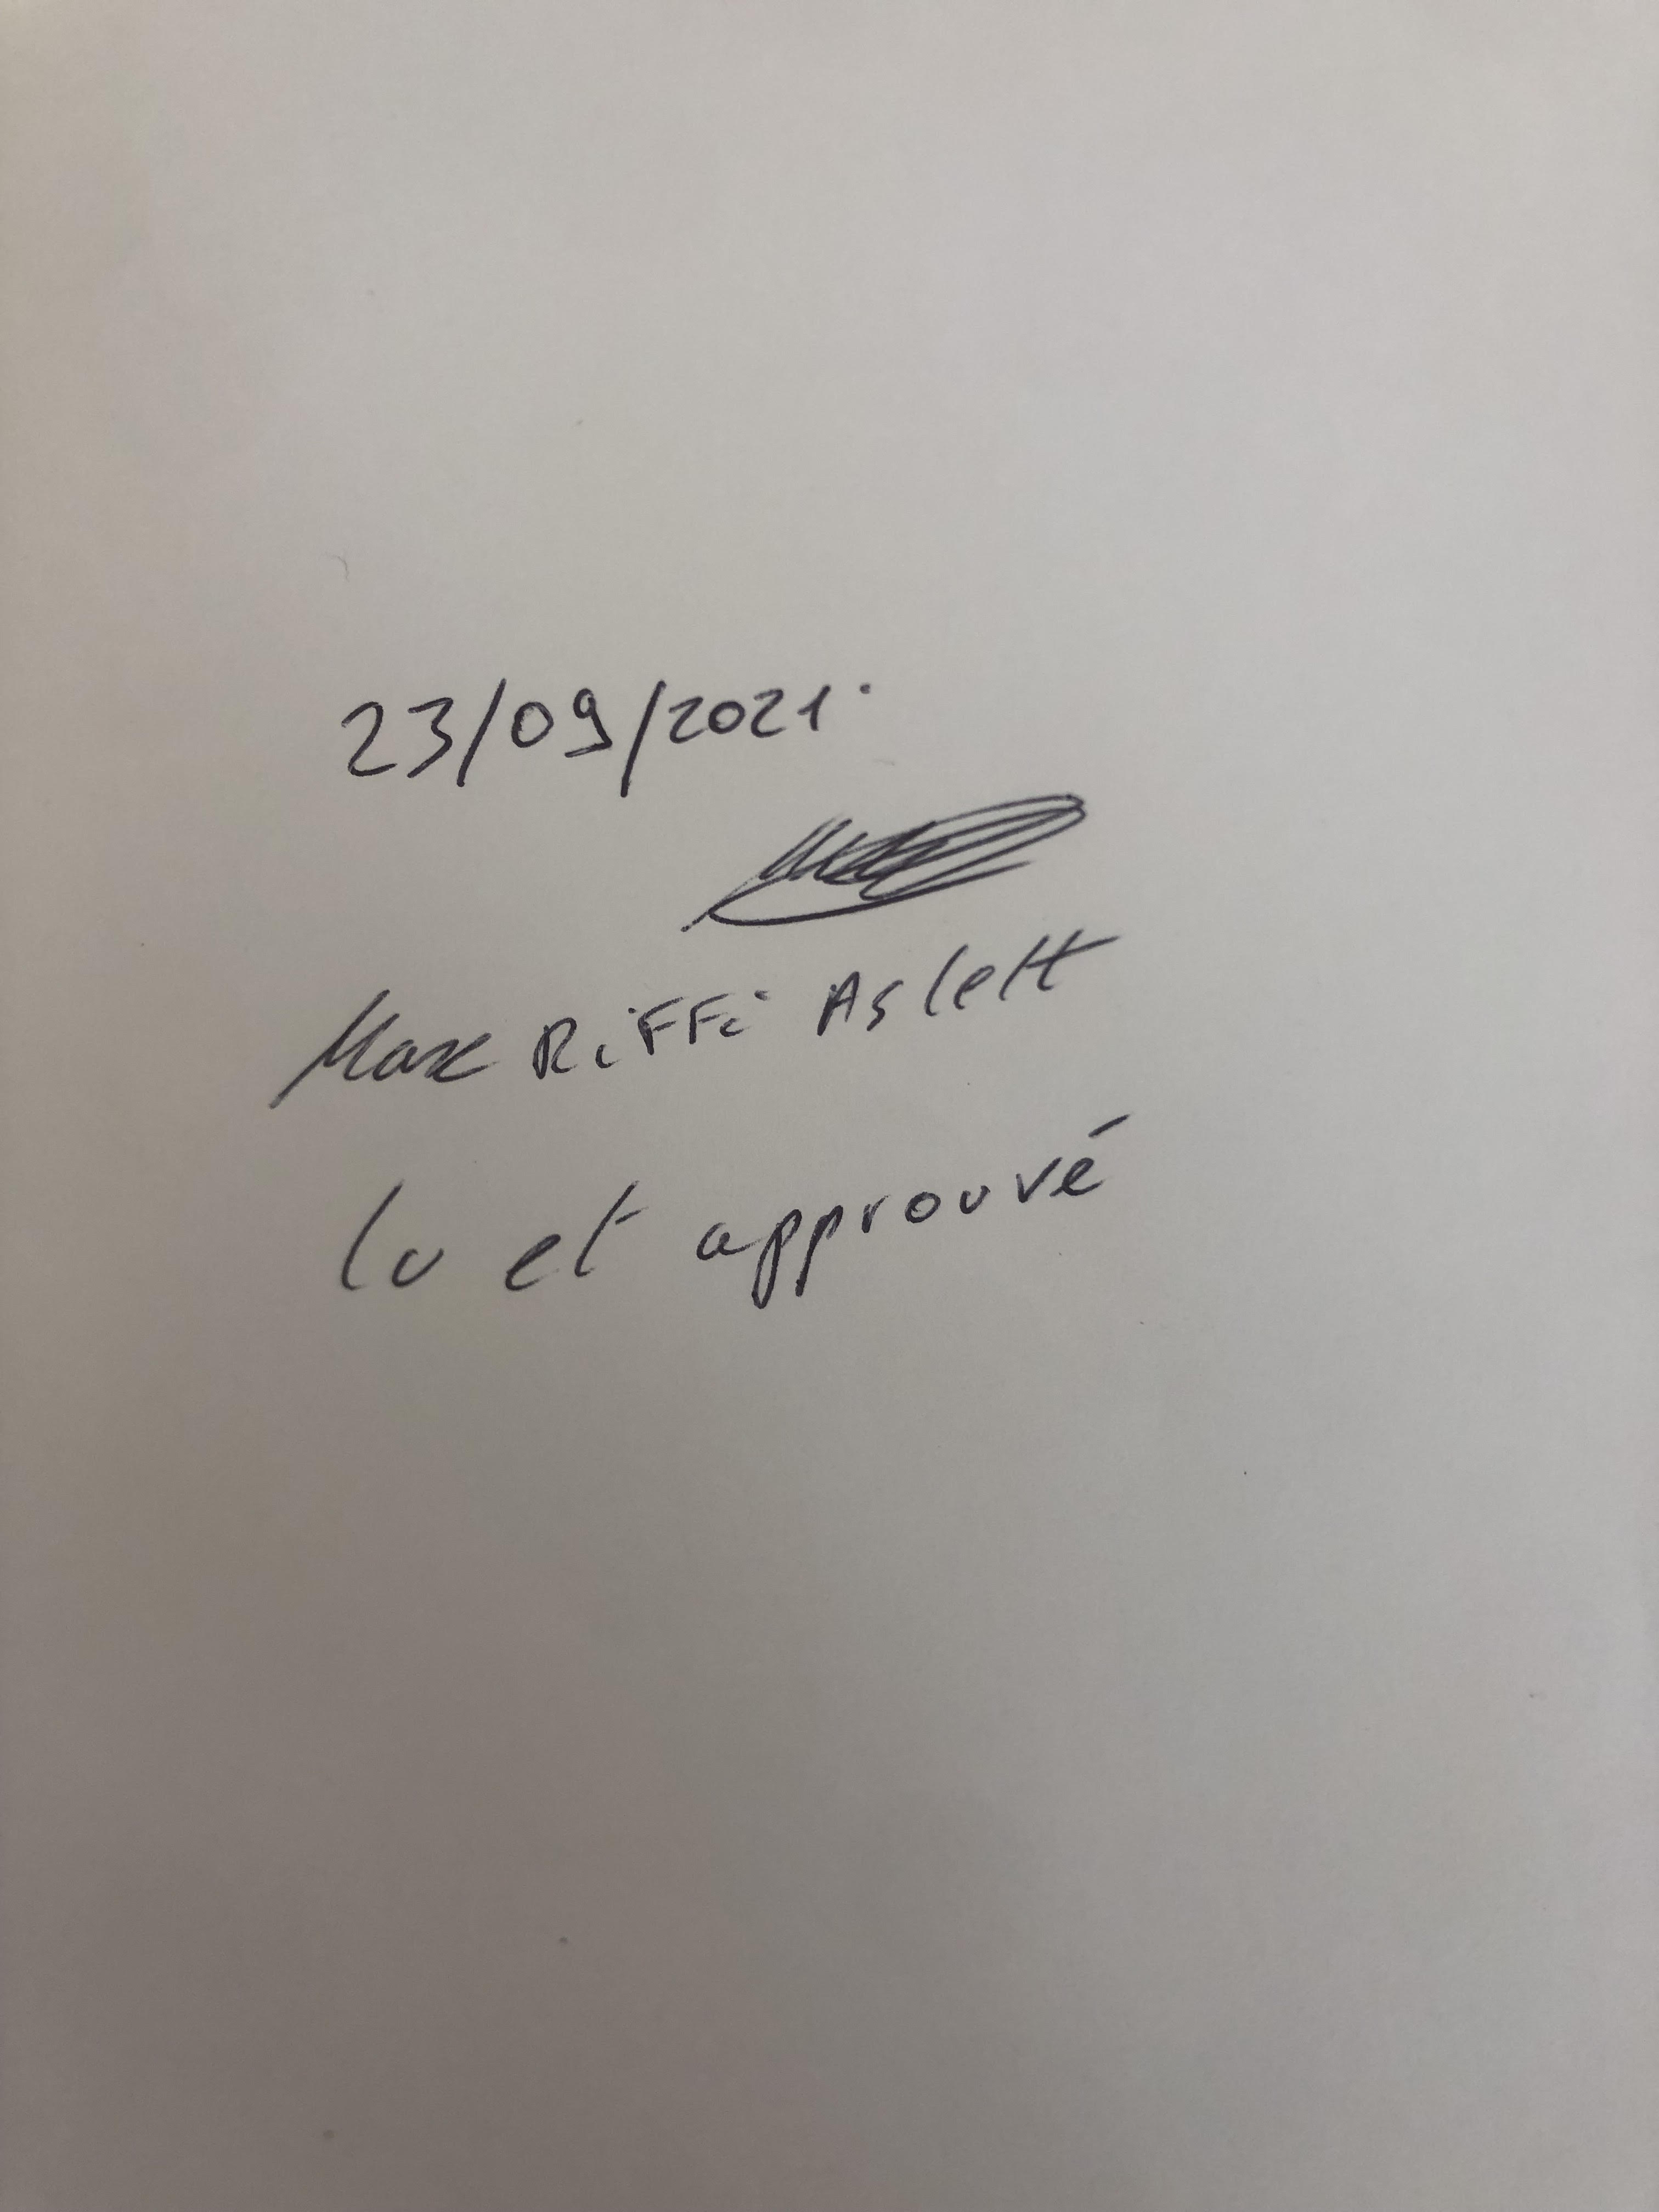 23/09/2021.
Max Riffi Aslett
lu et approuvé